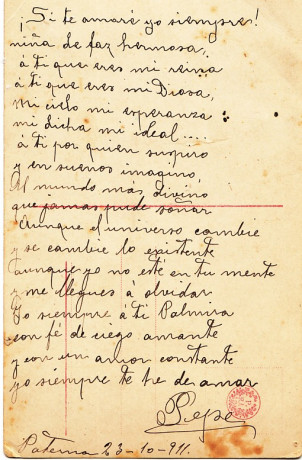 ¡Si te amaré yo siempre!
niña de faz hermosa
á ti que eres mi reina
á ti que eres mi Diosa,
mi cielo mi esperanza
mi dicha mi ideal....
á ti por quien suspiro
y en sueños imagino,
Al mundo más divino
que jamas pude soñar
Aunque el universo cambie
y se cambie lo existente
aunque yo no esté en tu mente
y me llegues á olvidar
Yo siempre á ti Palmira
con fé de ciego amante
y con un amor constante
yo siempre te he de amar
Pepe
Paterna 23-10-911.